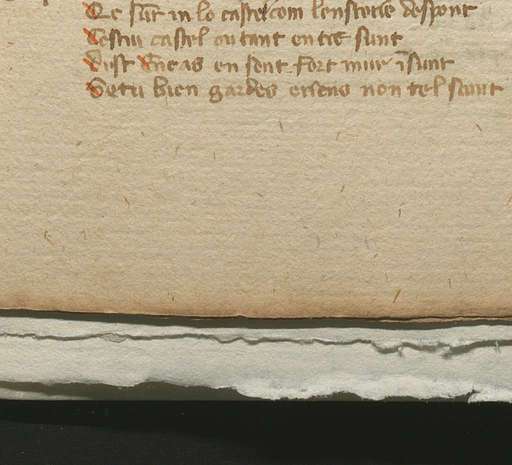 Qe sunt in lo castel com lenstorie despont
Cestui castel ou tant en tre sunt
Dist Eneas en sont fort mur i sunt
Se tu bien gardes ensens non tel sunt